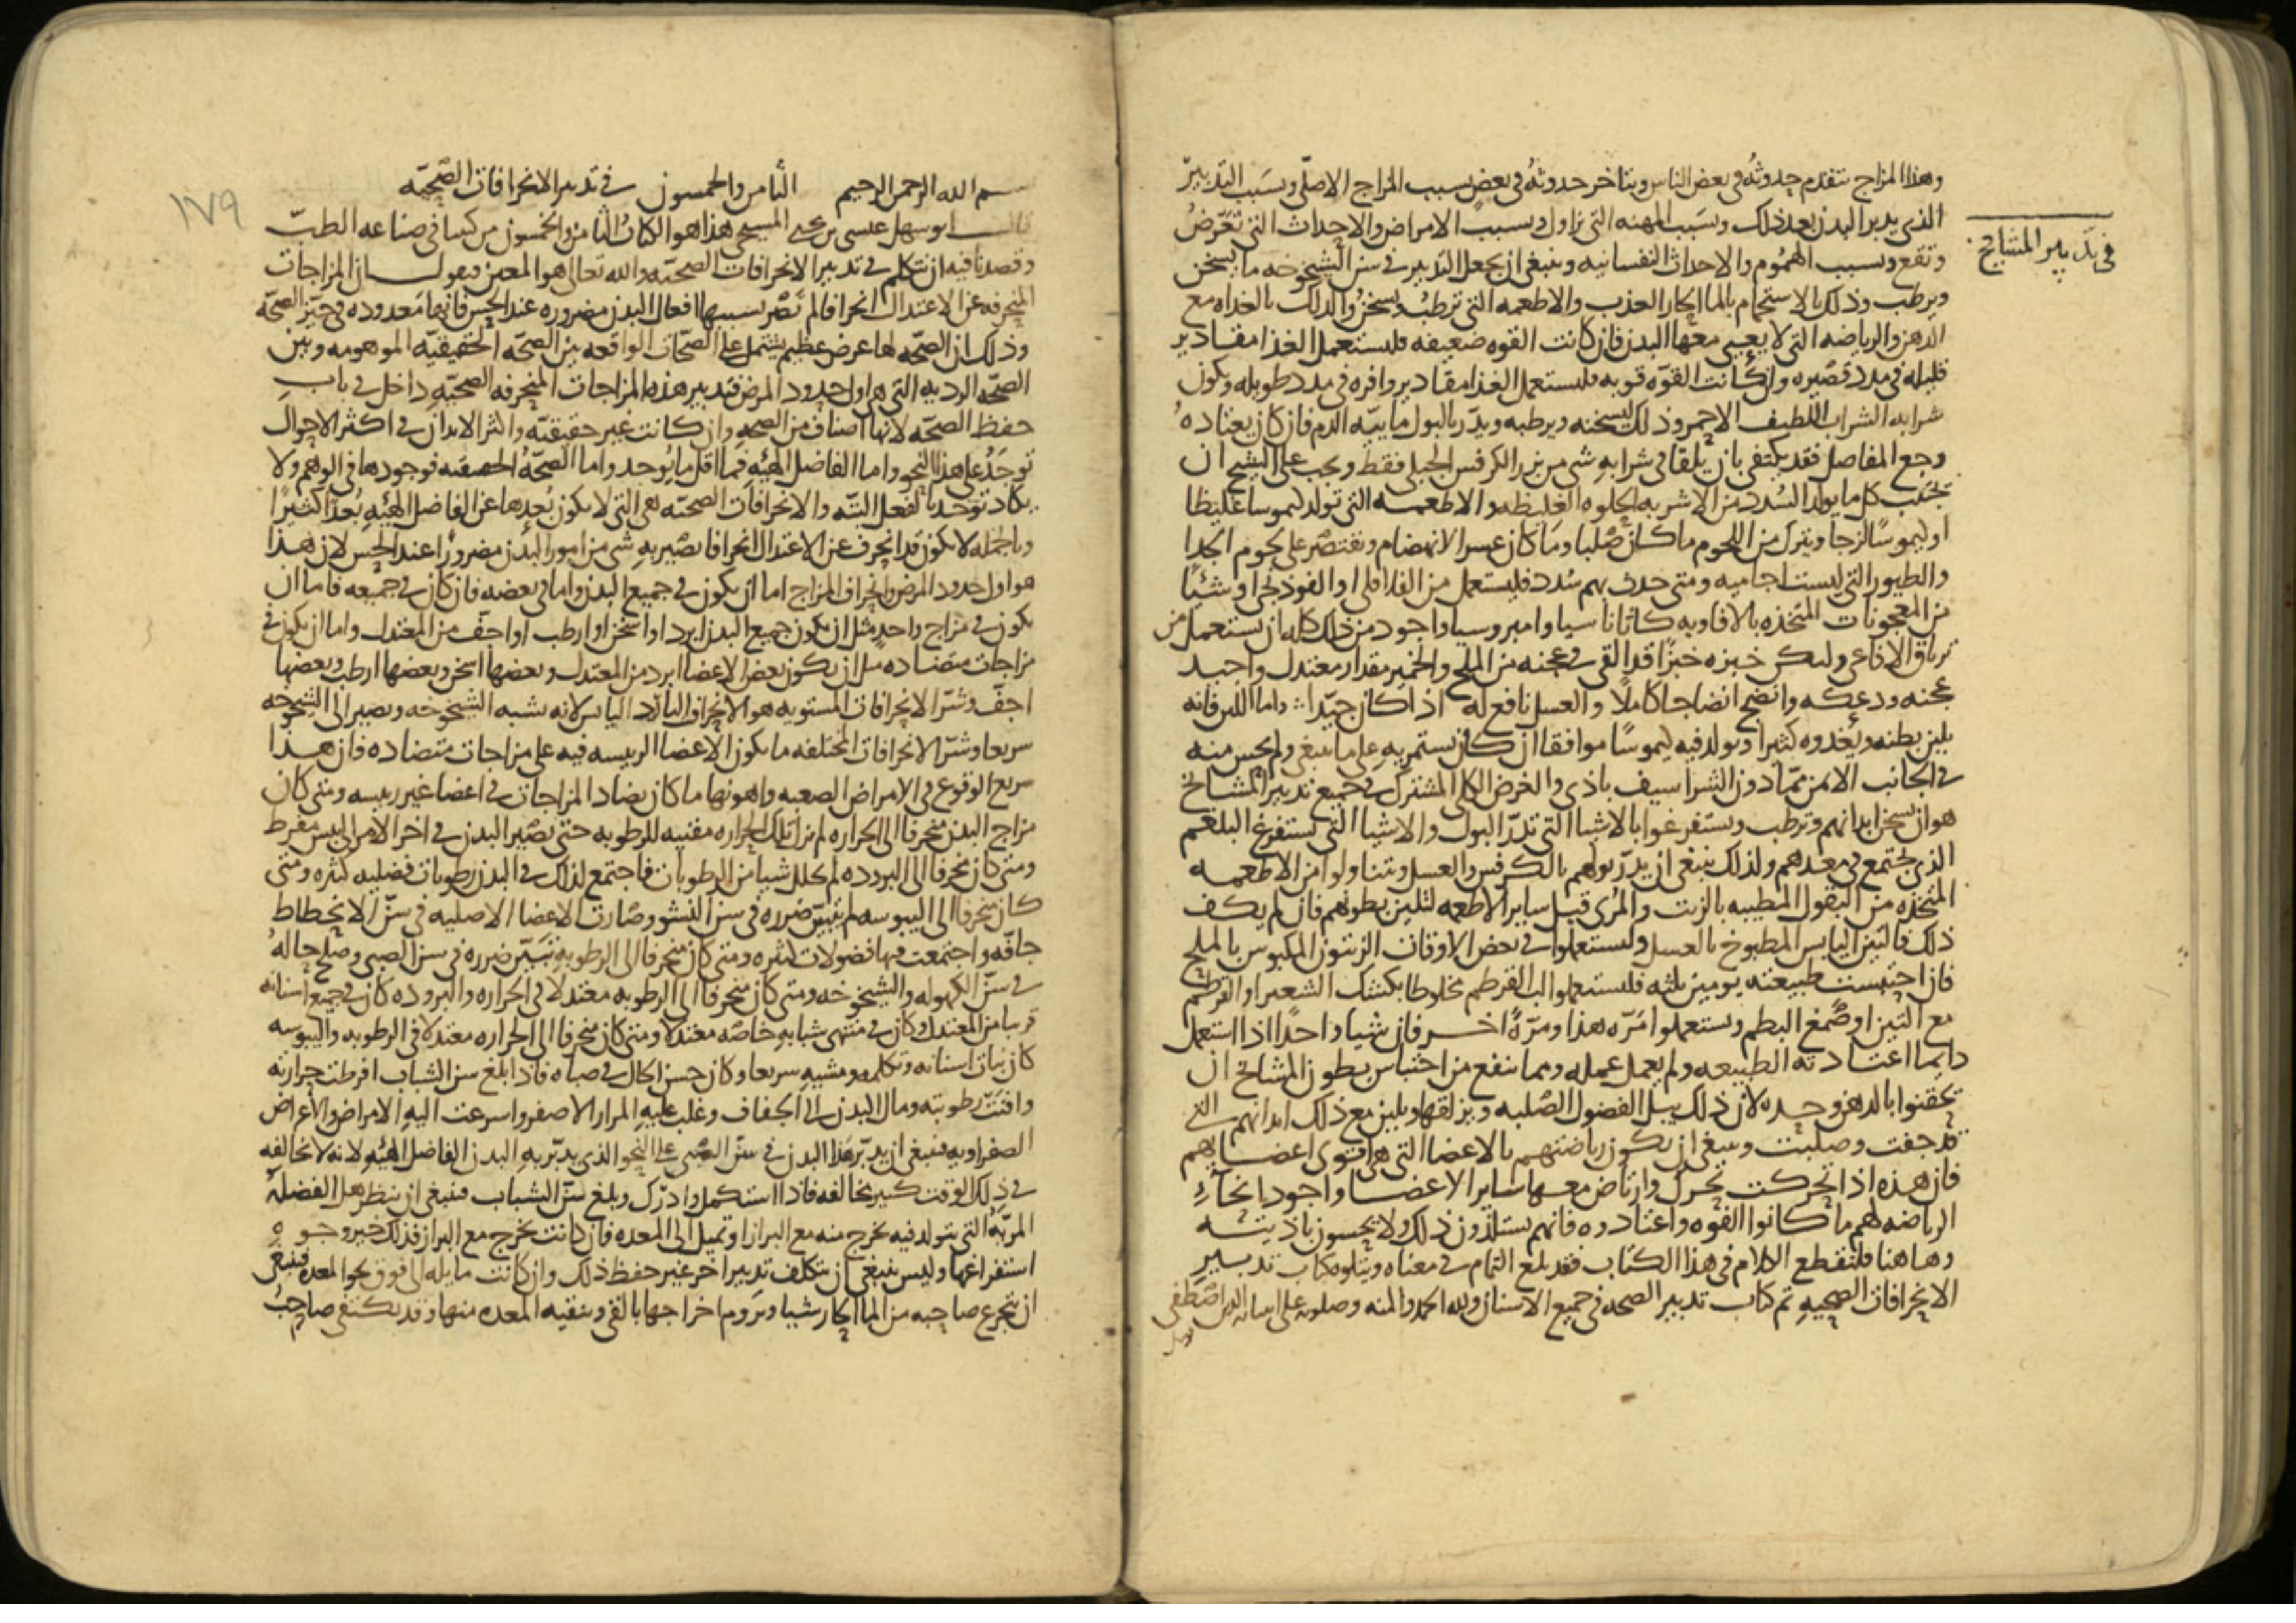 وهذا المزاج يتقدم حدوثه في بعض الناس ويتاخر حدوثه في بعض بسبب المزاج الاصلي وبسبب التدبير
الذي يدبر البدن بعد ذلك وبسبب المهنه التي يزاول وبسبب الامراض والاحداث التي تعرض
في تدبير المشايخ
وتقع وبسبب الهموم والاحداث النفسانيه وينبغي ان يجعل التدبير في سن الشيخوخه ما يسخن
ويرطب وذلك بالاستحمام بالما الحار العذب والاطعمه التي ترطب وتسخن والدلك بالغداه مع
الدهن والرياضه التي لا يعيى معها البدن فان كانت القوه ضعيفه فليستعمل الغذا مقادير
قليله في مدد قصيره وان كانت القوه قويه فليستعمل الغذا مقادير وافره في مدد طويله ويكون
شرابه الشراب اللطيف الاحمر وذلك ليسخنه ويرطبه ويدر بالبول مايية الدم فان كان يعتاده
وجع المفاصل فقد يكتفي بان يلقا في شرابه شي من بزر الكرفس الجبلي فقط ويجب على الشيخ ان
يجتنب كل ما يولد السدد من الاشربه الحلوه الغليظه والاطعمه التي تولد كيموسا غليظا
او كيموسا لزجا ويترك من اللحوم ما كان صلبا وما كان عسر الانهضام ويقتصر على لحوم الجدا
والطيور التي ليست اجاميه ومتى حدث بهم سدد فليستعمل من الفلافلي او الفوذنجي او شيئا
من المعجونات المتخذه بالافاويه كاثاناسيا وامبروسيا واجود من ذلك كله ان يستعمل من
ترياق الافاعي وليكن خبزه خبزا قد القي في عجنه من الملح والخمير مقدار معتدل واجيد
عجنه ودعكه وانضج انضاجا كاملا والعسل نافع له اذا كان جيدا واما اللبن فانه
يلين بطنه ويغذوه كثيرا ويولد فيه كيموسا موافقا ان كان يستمريه على ما ينبغي ولم يحس منه
في الجانب الايمن مما دون الشراسيف باذى والغرض الكلي المشترك في جميع تدبير المشايخ
هو ان يسخن ابدانهم وترطب ويستفرغوا بالاشيا التي تدر البول والاشيا التي تستفرغ البلغم
الذي يجتمع في معدهم ولذلك ينبغي ان يدر بولهم بالكرفس والعسل ويتناولوا من الاطعمه
المتخذه من البقول المطيبه بالزيت والمري قبل ساير الاطعمه لتلين بطونهم فان لم يكف
ذلك فالتين اليابس المطبوخ بالعسل وليستعملوا في بعض الاوقات الزيتون المكبوس بالملح
فان احتبست طبيعته يومين ثلثه فليستعملوا لب القرطم مخلوطا بكشك الشعير او القرطم
مع التين او صمغ البطم ويستعملوا مره هذا ومرة اخر فان شيا واحدا اذا استعمل
دايما اعتادته الطبيعه ولم يعمل عمله ومما ينفع من احتباس بطون المشايخ ان
يحقنوا بالدهن وحده لان ذلك يبل الفضول الصلبه ويزلقها ويلين مع ذلك ابدانهم التي
قد جفت وصلبت وينبغي ان يكون رياضتهم بالاعضا التي هي اقوى اعضايهم
فان هذه اذا تحركت تحرك وارتاض معها ساير الاعضا واجود انحاء
الرياضه لهم ما كانوا القوه واعتادوه فانهم يستلذون ذلك ولا يحسون باذيته
وهاهنا فلنقطع الكلام في هذا الكتاب فقد بلغ التمام في معناه ويتلوه كتاب تدبير
الانحرافات الصحيه تم كتاب تدبير الصحه في جميع الاسنان ولله الحمد والمنه وصلوته على الذين اصطفى
١٧٩
بسم الله الرحمن الرحيم الثامن والخمسون في تدبير الانحرافات الصحيه
قال ابو سهل عيسى بن يحيى المسيحي هذا هو الكتاب الثامن والخمسون من كتبنا في صناعه الطب
وقصدنا فيه ان نتكلم في تدبير الانحرافات الصحيه والله تعالى هو المعين ونقول ان المزاجات
المنحرفه عن الاعتدال انحرافا لم تصر بسببها افعال البدن مضروره عند الحس فانها معدوده في حيز الصحه
وذلك ان الصحه لها عرض عظيم يشتمل على الصحات الواقعه بين الصحه الحقيقيه الموهومه وبين
الصحه الرديه التي هي اول حدود المرض فتدبير هذه المزاجات المنحرفه الصحيه داخل في باب
حفظ الصحه لانها اصناف من الصحه وان كانت غير حقيقيه واكثر الابدان في اكثر الاحوال
توجد على هذا النحو واما الفاضل الهيئه فما اقل ما يوجد واما الصحه الحقيقيه فوجودها في الوهم ولا
يكاد توجد بالفعل البته والانحرافات الصحيه هي التي لا يكون بعدها عن الفاضل الهيئه بعدا كثيرا
وبالجمله لا يكون قد انحرف عن الاعتدال انحرافا يصير به شي من امور البدن مضرورا عند الحس لان هذا
هو اول حدود المرض وانحراف المزاج اما ان يكون في جميع البدن واما في بعضه فان كان في جميعه فاما ان
يكون في مزاج واحد مثل ان يكون جميع البدن ابرد او اسخن او ارطب او اجف من المعتدل واما ان يكون في
مزاجات متضاده مثل ان يكون بعض الاعضا ابرد من المعتدل وبعضها اسخن وبعضها ارطب وبعضها
اجف وشر الانحرافات المستويه هو الانحراف البارد اليابس لانه يشبه الشيخوخه ويصير الى الشيخوخه
سريعا وشر الانحرافات المختلفه ما يكون الاعضا الرييسه فيه على مزاجات متضاده فان هذا
سريع الوقوع في الامراض الصعبه واهونها ما كان تضاد المزاجات في اعضا غير رييسه ومتى كان
مزاج البدن منحرفا الى الحراره لم تزل تلك الحراره مفنيه للرطوبه حتى تصير البدن في اخر الامر الى يبس مفرط
ومتى كان منحرفا الى البروده لم تحلل شيا من الرطوبات فاجتمع لذلك في البدن رطوبات فضليه كثيره ومتى
كان منحرفا الى اليبوسه لم يتبين ضرره في سن النشو وصارت الاعضا الاصليه في سن الانحطاط
جافه واجتمعت فيها فضولات كثيره ومتى كان منحرفا الى الرطوبه تبين ضرره في سن الصبى وصلح حاله
في سن الكهوله والشيخوخه ومتى كان منحرفا الى الرطوبه معتدلا في الحراره والبروده كان في جميع اسنانه
قريبا من المعتدل وكان في منتهى شبابه خاصه معتدلا ومتى كان منحرفا الى الحراره معتدلا في الرطوبه واليبوسه
كان نبات اسنانه وتكلمه ومشيه سريعا وكان حسن الحال في صباه فاذا بلغ سن الشباب افرطت حرارته
وافنت رطوبته ومال البدن الى الجفاف وغلب عليه المرار الاصفر واسرعت اليه الامراض والاعراض
الصفراويه فينبغي ان يدبر هذا البدن في سن الصبى على النحو الذي يدبر به البدن الفاضل الهيئه لانه لا يخالفه
في ذلك الوقت كبير مخالفه فاذا استكمل وادرك وبلغ سن الشباب فينبغي ان ينظر هل الفضله
المريه التي يتولد فيه يخرج منه مع البراز او تميل الى المعده فان كانت تخرج مع البراز فذلك خير وجوه
استفراغها وليس ينبغي ان يتكلف تدبيرا اخر غير حفظ ذلك وان كانت مايله الى فوق نحو المعده فينبغي
ان يتجرع صاحبه من الما الحار شيا ويروم اخراجها بالقي وينقيه المعده منها وقد يكتفي صاحب